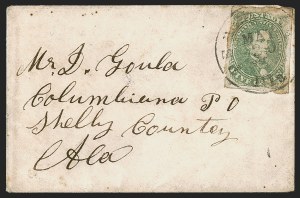 Mr. D. Gould
Columbiana P O
Shelby Countoy
Ala